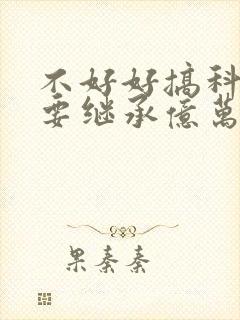 不好好搞科
要继承億萬
果秦秦